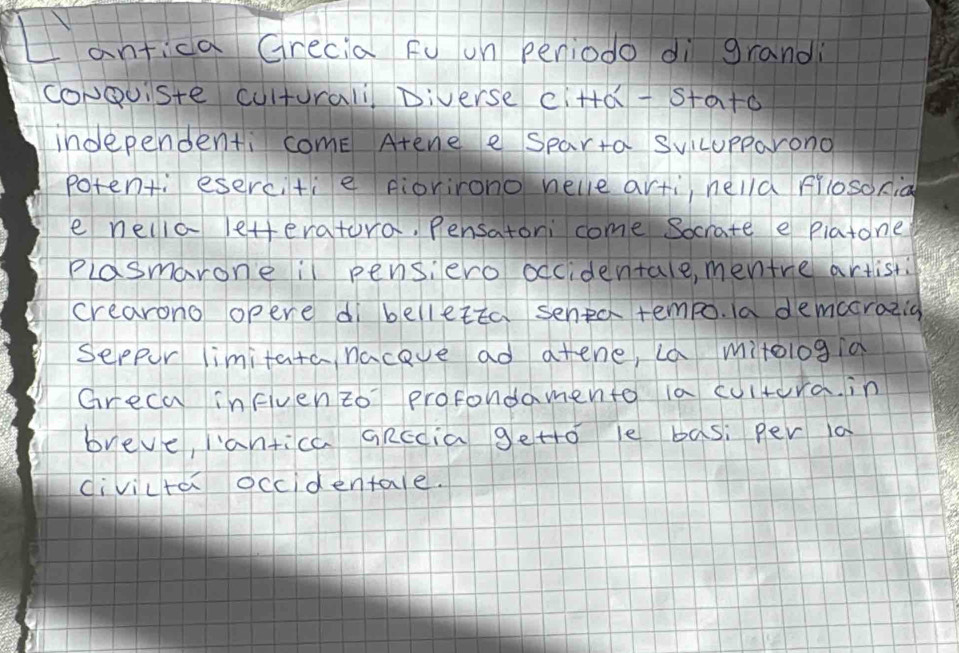 L'antica Grecia fu un periodo di grandi
conquiste culturali. Diverse città - stato
indipendenti come Atene e Sparta svilupparono
potenti eserciti e fiorirono nelle arti, nella filosofia
e nella letteratura. Pensatori come Socrate e Platone
Plasmarone il pensiero occidentale, mentre artisti
crearono opere di bellezza senza tempo. la democrazia
seppur limitata, nacque ad atene, la mitologia
Greca influenzò profondamento la cultura. in
breve, l'antica Grecia gettò le basi per la
civiltà occidentale.